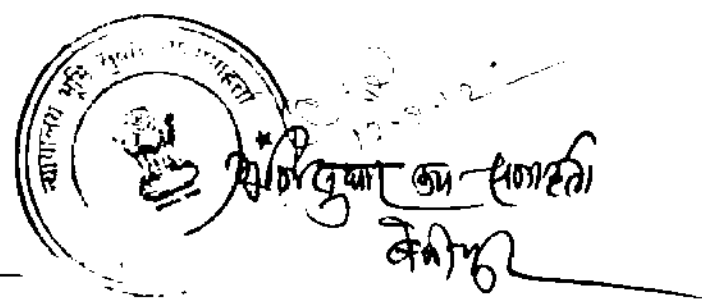 न्यायालय भूमि सुधार उप समाहर्ता
भूमि सुधार उप-समाहर्ता
बेनीपुर